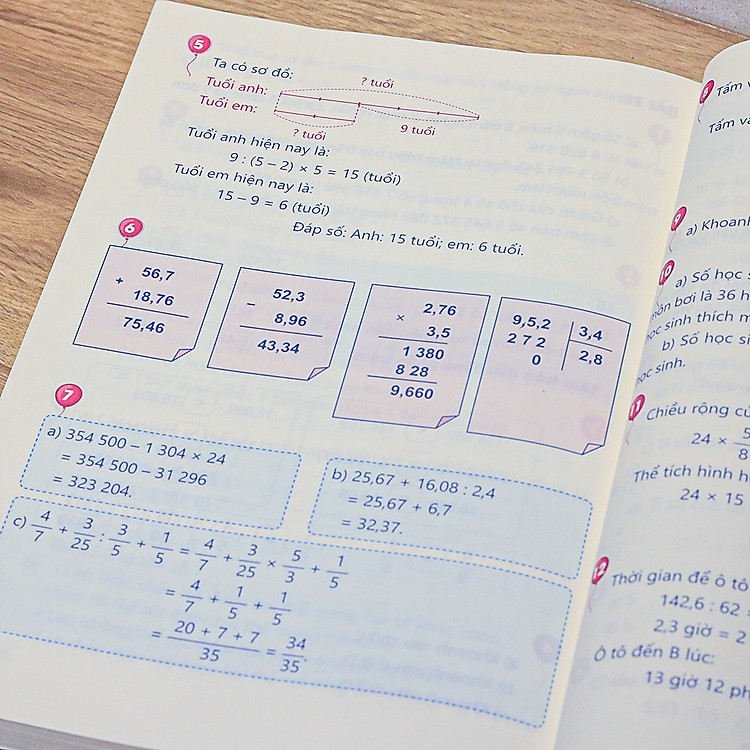 5
Ta có sơ đồ:
? tuổi
Tuổi anh:
Tuổi em:
? tuổi
9 tuổi
Tuổi anh hiện nay là:
9 : (5 – 2) × 5 = 15 (tuổi)
Tuổi em hiện nay là:
15 – 9 = 6 (tuổi)
Đáp số: Anh: 15 tuổi; em: 6 tuổi.
6
56,7
+
18,76
75,46
52,3
–
8,96
43,34
2,76
×
3,5
1 380
8 28
9,660
9,5,2 3,4
2 7 2 2,8
0
7
a) 354 500 – 1 304 × 24
= 354 500 – 31 296
= 323 204.
b) 25,67 + 16,08 : 2,4
= 25,67 + 6,7
= 32,37.
c) 4/7 + 3/25 : 3/5 + 1/5 = 4/7 + 3/25 × 5/3 + 1/5
= 4/7 + 1/5 + 1/5
= 20 + 7 + 7/35 = 34/35.
8
Tấm v
Tấm và
9
a) Khoanh
10
a) Số học s
môn bơi là 36 h
học sinh thích m
b) Số học si
học sinh.
11
Chiều rộng củ
24 × 5/8
Thể tích hình h
24 × 15
12
Thời gian để ô tô
142,6 : 62
2,3 giờ = 2
Ô tô đến B lúc:
13 giờ 12 ph